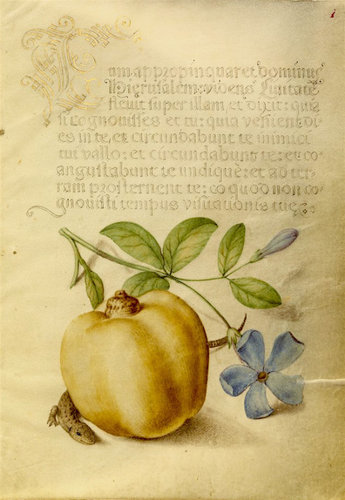 1
Cum appropinquaret dominus
Hierusalem: videns Civitatē
flevit super illam, et dixit: quia
si cognovisses et tu: quia venient di⸗
es in te, et circundabunt te inimici
tui vallo: et circundabunt te: et co⸗
angustabunt te undique: et ad ter⸗
ram prosternent te: eo quod non co⸗
gnovisti tempus visitationis tuę: